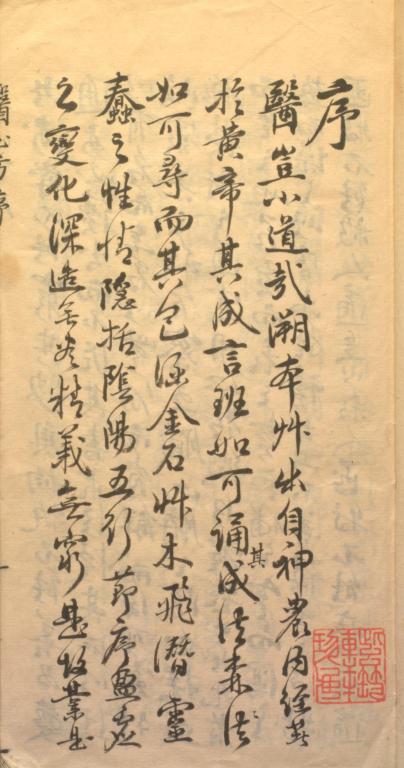 序
醫豈小道哉溯本艸出自神農內經著
於黃帝其成言班如可誦其成法森法
如可尋而其包涵金石艸木飛潛靈
蠢之性情隱括陰陽五行節序盈虛
之變化深造無精義無窮是故業是